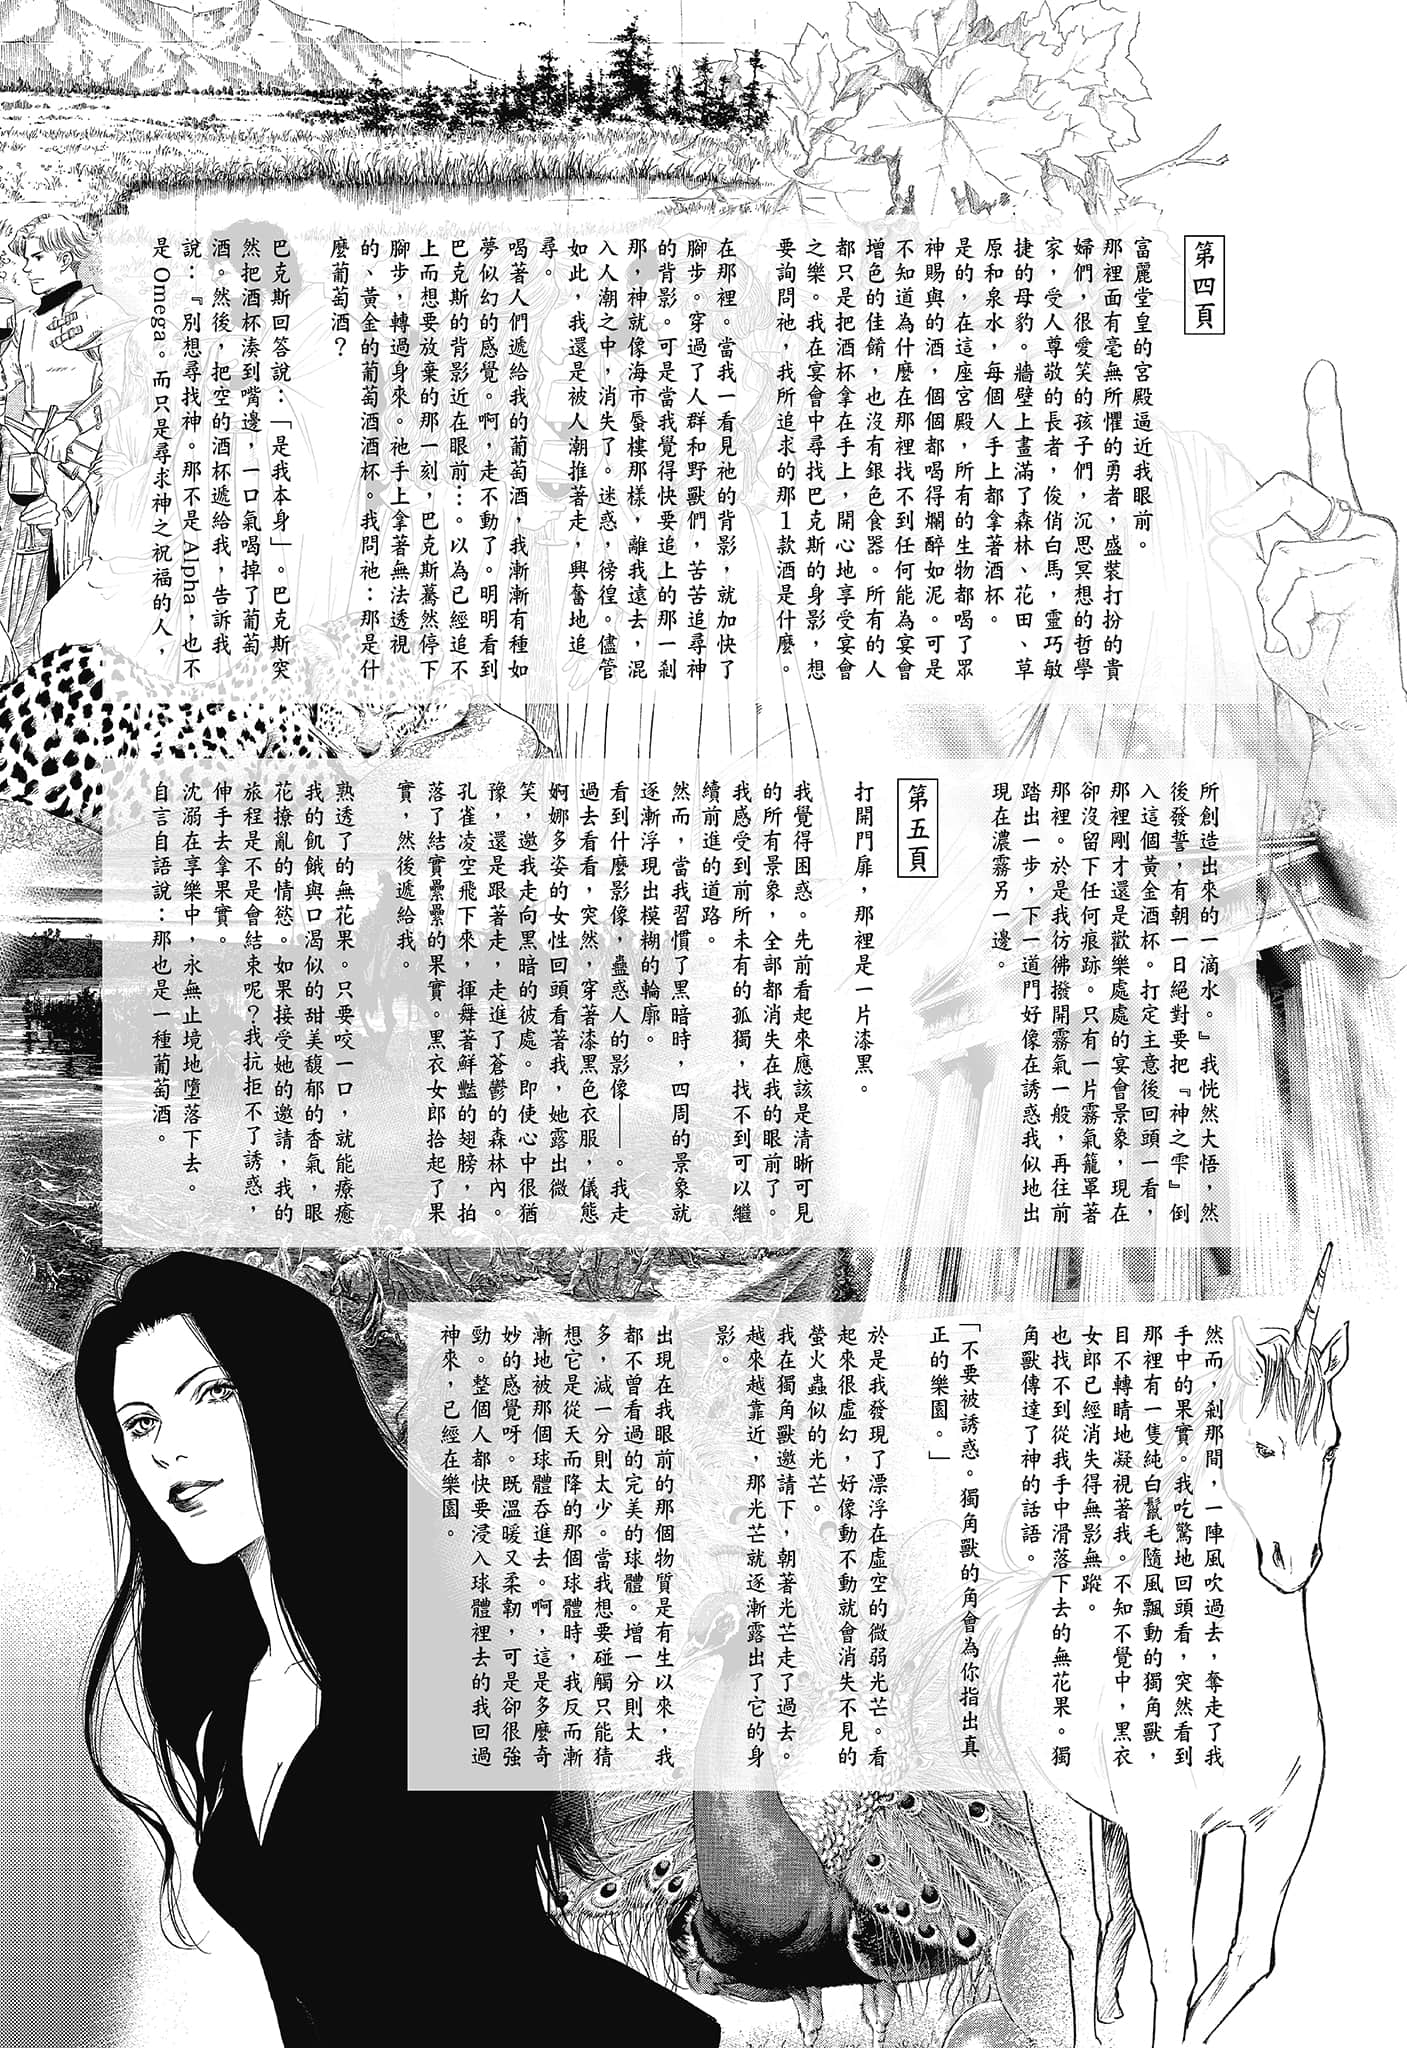 第四頁
富麗堂皇的宮殿逼近我眼前。
那裡面有毫無所懼的勇者，盛裝打扮的貴
婦們，很愛笑的孩子們，沉思冥想的哲學
家，受人尊敬的長者，俊俏白馬，靈巧敏
捷的母豹。牆壁上畫滿了森林、花田、草
原和泉水，每個人手上都拿著酒杯。
是的，在這座宮殿，所有的生物都喝了眾
神賜與的酒，個個都喝得爛醉如泥。可是
不知道為什麼在那裡找不到任何能為宴會
增色的佳餚，也沒有銀色食器。所有的人
都只是把酒杯拿在手上，開心地享受宴會
之樂。我在宴會中尋找巴克斯的身影，想
要詢問祂，我所追求的那1款酒是什麼。
在那裡。當我一看見祂的背影，就加快了
腳步。穿過了人群和野獸們，苦苦追尋神
的背影。可是當我覺得快要追上的那一剎
那，神就像海市蜃樓那樣，離我遠去，混
入人潮之中，消失了。迷惑，徬徨。儘管
如此，我還是被人潮推著走，興奮地追
尋。
喝著人們遞給我的葡萄酒，我漸漸有種如
夢似幻的感覺。啊，走不動了。明明看到
巴克斯的背影近在眼前…。以為已經追不
上而想要放棄的那一刻，巴克斯驀然停下
腳步，轉過身來。祂手上拿著無法透視
的、黃金的葡萄酒酒杯。我問祂：那是什
麼葡萄酒？
巴克斯回答說：「是我本身」。巴克斯突
然把酒杯湊到嘴邊，一口氣喝掉了葡萄
酒。然後，把空的酒杯遞給我，告訴我
說：『別想尋找神。那不是Alpha，也不
是Omega。而只是尋求神之祝福的人，
所創造出來的一滴水。』我恍然大悟，然
後發誓，有朝一日絕對要把『神之雫』倒
入這個黃金酒杯。打定主意後回頭一看，
那裡剛才還是歡樂處處的宴會景象，現在
卻沒留下任何痕跡。只有一片霧氣籠罩著
那裡。於是我彷彿撥開霧氣一般，再往前
踏出一步，下一道門好像在誘惑我似地出
現在濃霧另一邊。
第五頁
打開門扉，那裡是一片漆黑。
我覺得困惑。先前看起來應該是清晰可見
的所有景象，全部都消失在我的眼前了。
我感受到前所未有的孤獨，找不到可以繼
續前進的道路。
然而，當我習慣了黑暗時，四周的景象就
逐漸浮現出模糊的輪廓。
看到什麼影像，蠱惑人的影像——。我走
過去看看，突然，穿著漆黑色衣服，儀態
婀娜多姿的女性回頭看著我，她露出微
笑，邀我走向黑暗的彼處。即使心中很猶
豫，還是跟著走，走進了蒼鬱的森林內。
孔雀凌空飛下來，揮舞著鮮豔的翅膀，拍
落了結實纍纍的果實。黑衣女郎拾起了果
實，然後遞給我。
熟透了的無花果。只要咬一口，就能療癒
我的飢餓與口渴似的甜美馥郁的香氣，眼
花撩亂的情慾。如果接受她的邀請，我的
旅程是不是會結束呢？我抗拒不了誘惑，
伸手去拿果實。
沈溺在享樂中，永無止境地墮落下去。
自言自語說：那也是一種葡萄酒。
然而，剎那間，一陣風吹過去，奪走了我
手中的果實。我吃驚地回頭看，突然看到
那裡有一隻純白鬣毛隨風飄動的獨角獸，
目不轉睛地凝視著我。不知不覺中，黑衣
女郎已經消失得無影無蹤。
也找不到從我手中滑落下去的無花果。獨
角獸傳達了神的話語。
「不要被誘惑。獨角獸的角會為你指出真
正的樂園。」
於是我發現了漂浮在虛空的微弱光芒。看
起來很虛幻，好像動不動就會消失不見的
螢火蟲似的光芒。
我在獨角獸邀請下，朝著光芒走了過去。
越來越靠近，那光芒就逐漸露出了它的身
影。
出現在我眼前的那個物質是有生以來，我
都不曾看過的完美的球體。增一分則太
多，減一分則太少。當我想要碰觸只能猜
想它是從天而降的那個球體時，我反而漸
漸地被那個球體吞進去。啊，這是多麼奇
妙的感覺呀。既溫暖又柔韌，可是卻很強
勁。整個人都快要浸入球體裡去的我回過
神來，已經在樂園。